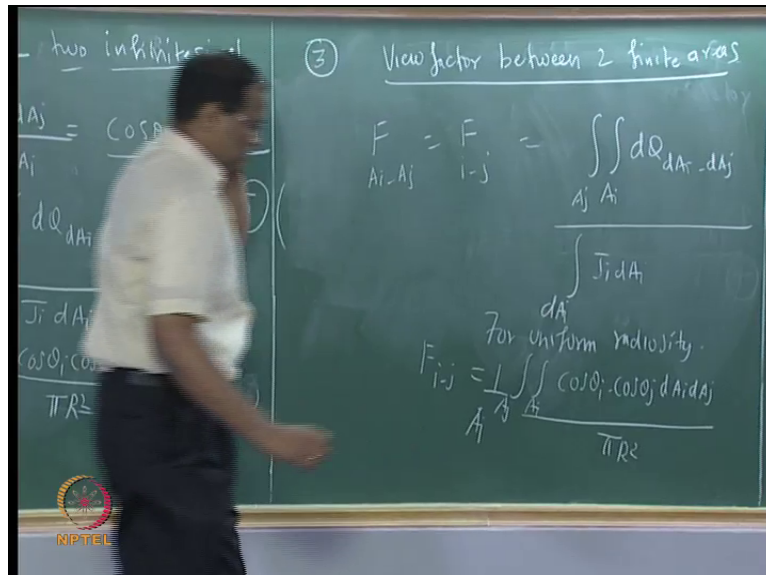 two infinitesimal
dAj = cosθ
Ai
dQ dAi
Ji dAi
cosθi cos
πR²
③ View factor between 2 finite areas
F Ai-Aj = F i-j = ∫∫ dQ dAi-dAj
Aj Ai
∫ Ji dAi
dAi
For uniform radiosity.
F i-j = 1/Ai ∫∫ cosθi . cosθj dAi dAj
Aj Ai
πR²
NPTEL